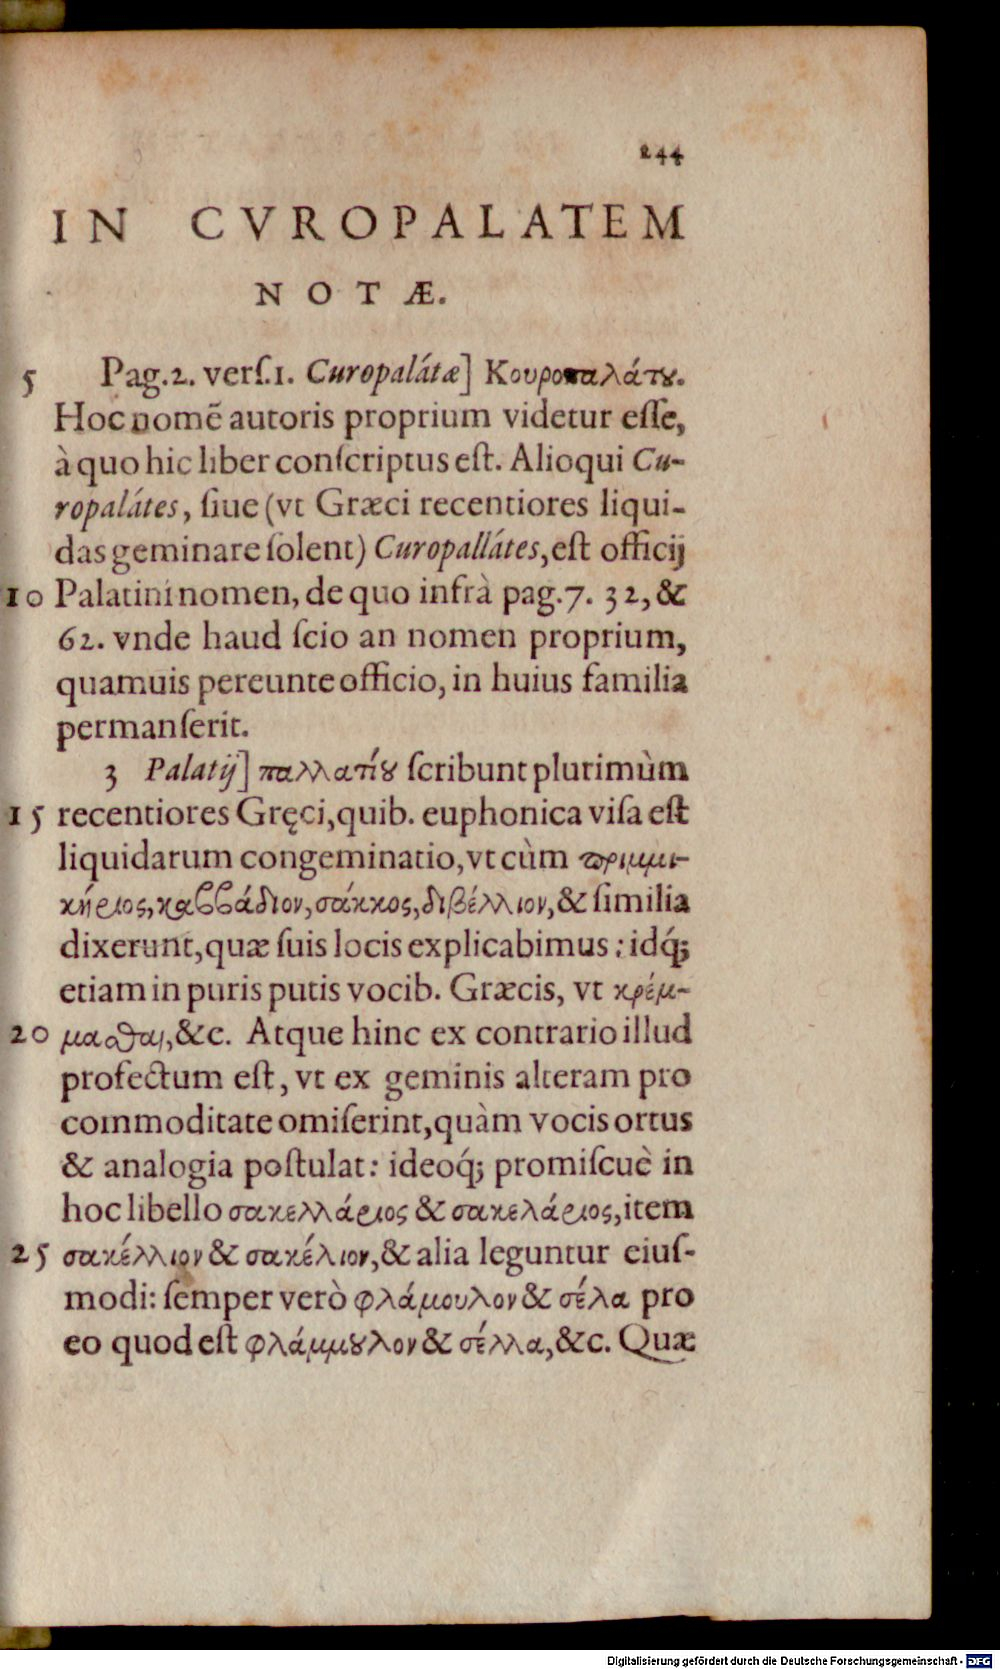 244
IN CVROPALATEM
NOTÆ.
5 Pag.2. verſ.1. Curopalátæ] Κουροπαλάτȣ.
Hoc nomẽ autoris proprium videtur eſſe,
à quo hic liber conſcriptus eſt. Alioqui Cu-
ropalátes, ſiue (vt Græci recentiores liqui-
das geminare ſolent) Curopallátes, eſt officij
10 Palatini nomen, de quo infrà pag.7. 32, &
62. vnde haud ſcio an nomen proprium,
quamuis pereunte officio, in huius familia
permanſerit.
3 Palatij] παλλατίȣ ſcribunt plurimùm
15 recentiores Gręci, quib. euphonica viſa eſt
liquidarum congeminatio, vt cùm πριμμι-
κήριος, καββάδιον, σάκκος, διβέλλιον, & ſimilia
dixerunt, quæ ſuis locis explicabimus: idq́;
etiam in puris putis vocib. Græcis, vt κρέμ-
20 μασθαι, &c. Atque hinc ex contrario illud
profectum eſt, vt ex geminis alteram pro
commoditate omiſerint, quàm vocis ortus
& analogia poſtulat: ideoq́; promiſcuè in
hoc libello σακελλάριος & σακελάριος, item
25 σακέλλιον & σακέλιον, & alia leguntur eiuſ-
modi: ſemper verò φλάμουλον & σέλα pro
eo quod eſt φλάμμȣλον & σέλλα, &c. Quæ
Digitalisierung gefördert durch die Deutsche Forschungsgemeinschaft - DFG